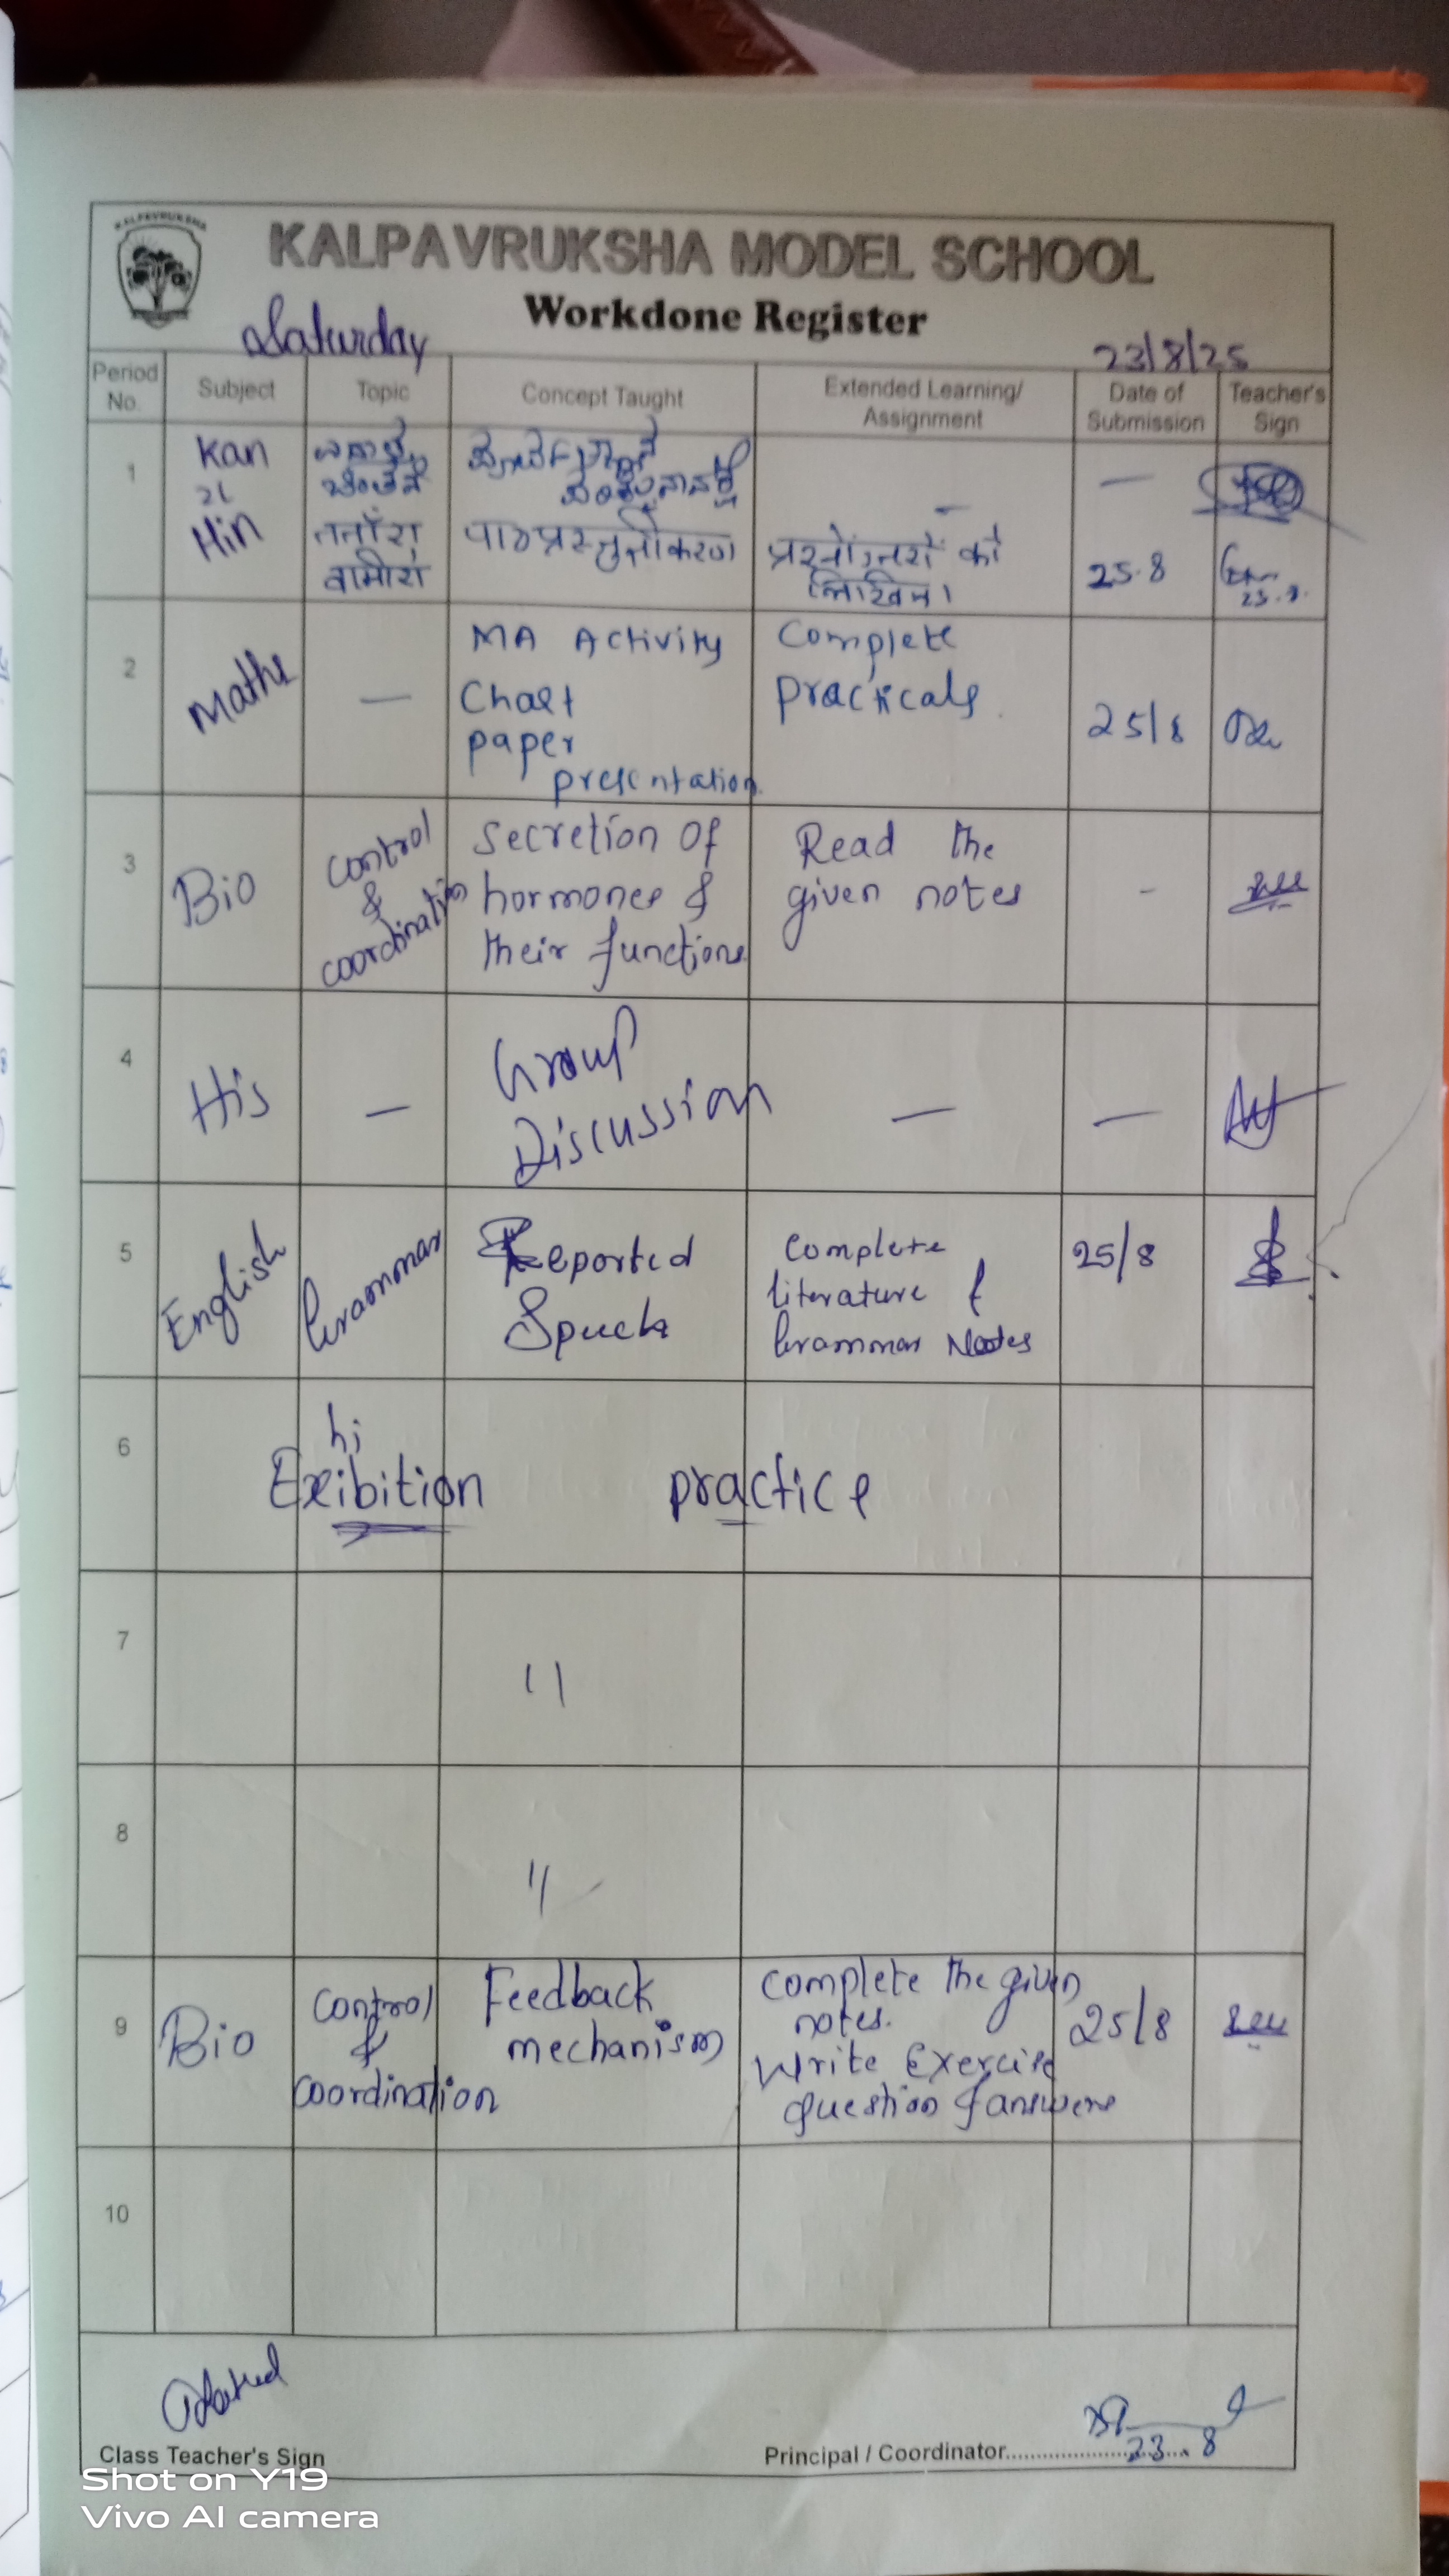 KALPAVRUKSHA
KALPAVRUKSHA MODEL SCHOOL
Workdone Register
Saturday
23/8/25
Period No.
Subject
Topic
Concept Taught
Extended Learning/
Assignment
Date of
Submission
Teacher's
Sign
1
Kan
—
—
Hin
तताँरा
वामीरो
पाठप्रस्तुतीकरण
को
लिखिए।
25.8
2
Maths
—
MA Activity
Chart
paper
presentation.
Complete
practicals.
25/8
3
Bio
control
&
coordination
Secretion of
hormones &
their functions
Read the
given notes
-
4
His
—
Group
Discussion
—
—
5
English
Grammar
Reported
Speech
Complete
literature &
Grammar Notes
25/8
6
hi
Exibition practice
7
11
8
11
9
Bio
Control
&
coordination
Feedback
mechanism
complete the given
notes.
Write Exercise
question & answers
25/8
10
Class Teacher's Sign
Principal / Coordinator
23.8
Shot on Y19
Vivo AI camera